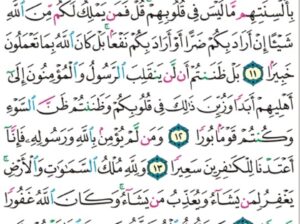 بِأَلۡسِنَتِهِم مَّا لَيۡسَ فِي قُلُوبِهِمۡۚ قُلۡ فَمَن يَمۡلِكُ لَكُم مِّنَ ٱللَّهِ
شَيۡـًٔا إِنۡ أَرَادَ بِكُمۡ ضَرًّا أَوۡ أَرَادَ بِكُمۡ نَفۡعَۢاۚ بَلۡ كَانَ ٱللَّهُ بِمَا تَعۡمَلُونَ
خَبِيرَۢا ١١ بَلۡ ظَنَنتُمۡ أَن لَّن يَنقَلِبَ ٱلرَّسُولُ وَٱلۡمُؤۡمِنُونَ إِلَىٰٓ
أَهۡلِيهِمۡ أَبَدٗا وَزُيِّنَ ذَٰلِكَ فِي قُلُوبِكُمۡ وَظَنَنتُمۡ ظَنَّ ٱلسَّوۡءِ
وَكُنتُمۡ قَوۡمَۢا بُورٗا ١٢ وَمَن لَّمۡ يُؤۡمِنۢ بِٱللَّهِ وَرَسُولِهِۦ فَإِنَّآ
أَعۡتَدۡنَا لِلۡكَٰفِرِينَ سَعِيرٗا ١٣ وَلِلَّهِ مُلۡكُ ٱلسَّمَٰوَٰتِ وَٱلۡأَرۡضِۚ
يَغۡفِرُ لِمَن يَشَآءُ وَيُعَذِّبُ مَن يَشَآءُۚ وَكَانَ ٱللَّهُ غَفُورٗا